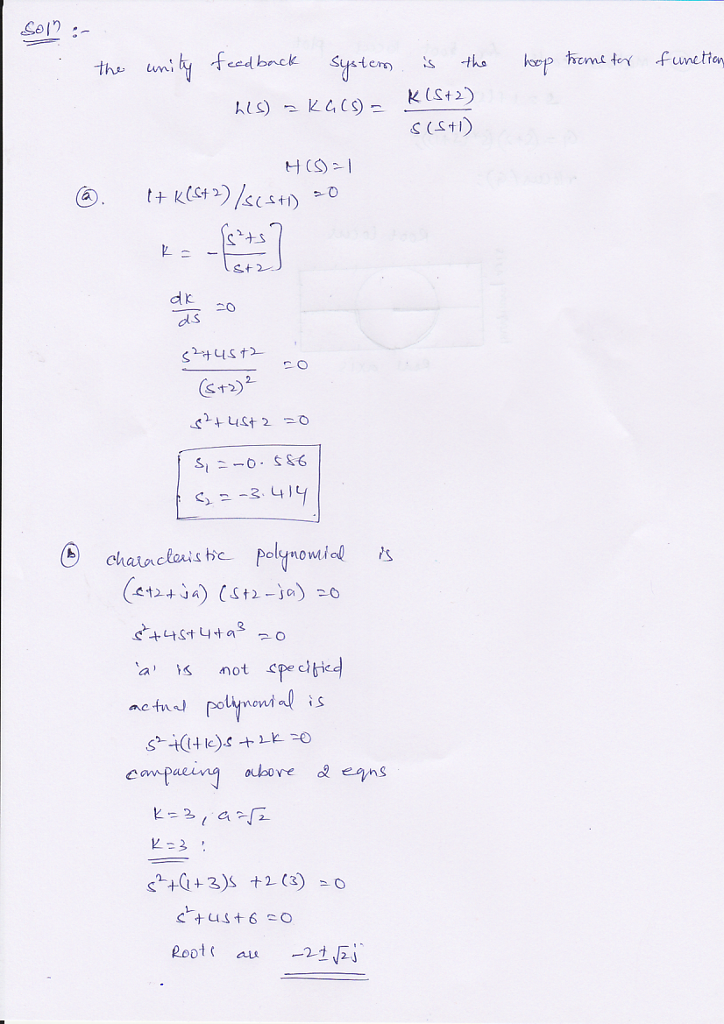 Soln :-
the unity feedback system is the loop transfer function
L(s) = KG(s) = K(s+2) / s(s+1)
H(s)=1
(a). 1+ K(s+2)/s(s+1) =0
K = -[s²+s / s+2]
dK/ds =0
s²+4s+2 / (s+2)² =0
s²+4s+2 =0
s₁ = -0.586
s₂ = -3.414
(b) characteristic polynomial is
(s+2+ja) (s+2-ja) =0
s²+4s+4+a³ =0
'a' is not specified
actual polynomial is
s²+(1+k)s +2K =0
comparing above 2 eqns
K=3, a=√2
K=3 :
s²+(1+3)s +2(3) =0
s²+4s+6 =0
Roots are -2±√2j